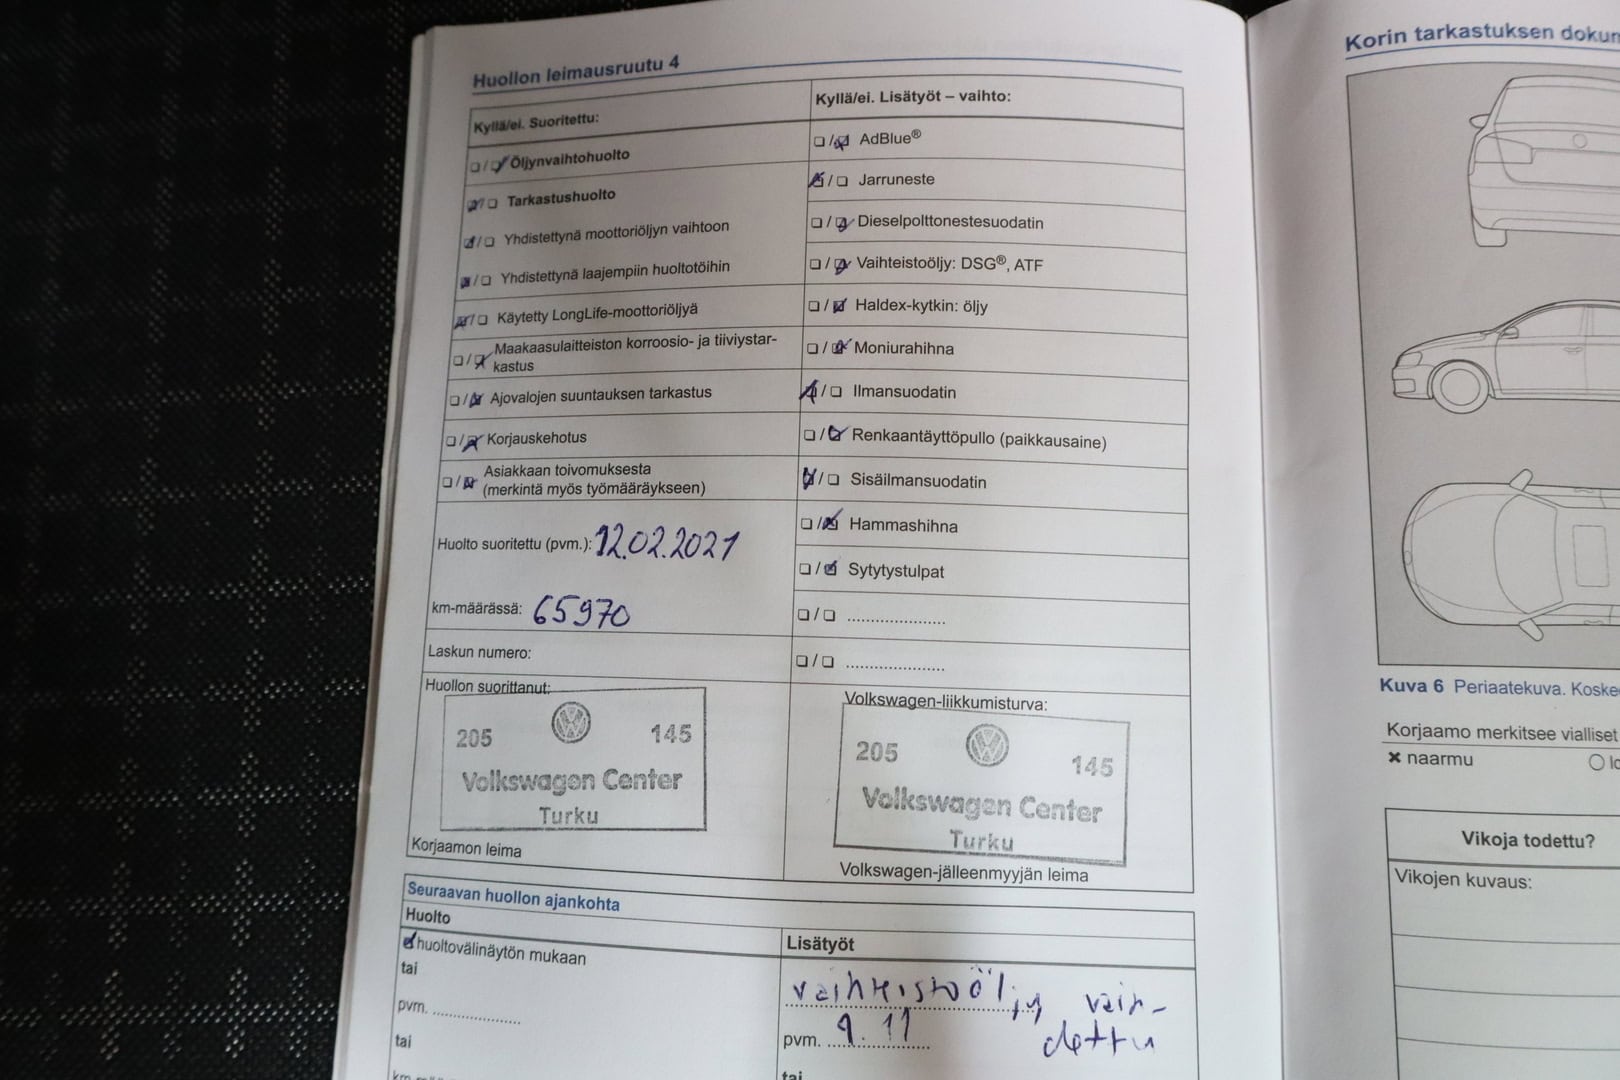 Huollon leimausruutu 4
Kyllä/ei. Suoritettu:
Öljynvaihtohuolto
Tarkastushuolto
Yhdistettynä moottoriöljyn vaihtoon
Yhdistettynä laajempiin huoltotöihin
Käytetty LongLife-moottoriöljyä
Maakaasulaitteiston korroosio- ja tiiviystar-
kastus
Ajovalojen suuntauksen tarkastus
Korjauskehotus
Asiakkaan toivomuksesta
(merkintä myös työmääräykseen)
Huolto suoritettu (pvm.): 12.02.2021
km-määrässä: 65970
Laskun numero:
Huollon suorittanut:
205 145
Volkswagen Center
Turku
Korjaamon leima
Kyllä/ei. Lisätyöt – vaihto:
AdBlue®
Jarruneste
Dieselpolttonestesuodatin
Vaihteistoöljy: DSG®, ATF
Haldex-kytkin: öljy
Moniurahihna
Ilmansuodatin
Renkaantäyttöpullo (paikkausaine)
Sisäilmansuodatin
Hammashihna
Sytytystulpat
Volkswagen-liikkumisturva:
205 145
Volkswagen Center
Turku
Volkswagen-jälleenmyyjän leima
Seuraavan huollon ajankohta
Huolto
huoltovälinäytön mukaan
tai
pvm.
tai
Lisätyöt
vaihteistoöljy vaih-
dettu
pvm. 9.11
tai
Korin tarkastuksen
Kuva 6 Periaatekuva.
Korjaamo merkitsee vialliset
naarmu
Vikoja todettu?
Vikojen kuvaus: